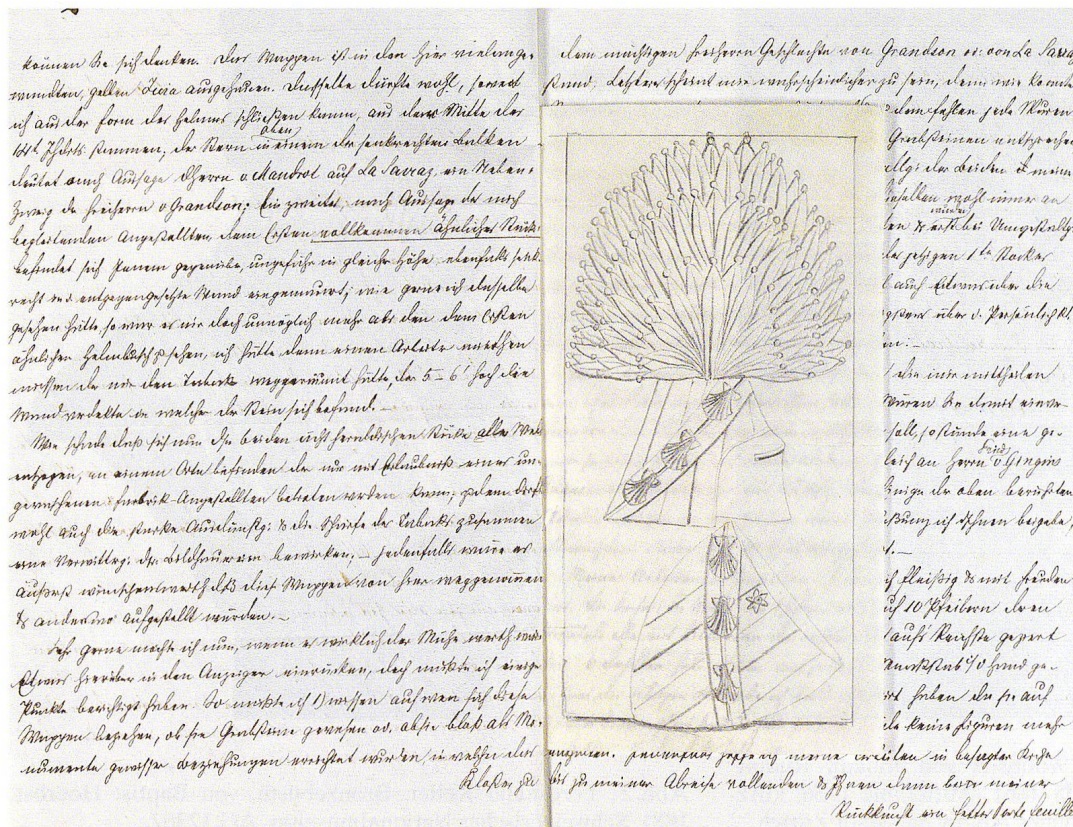 können Sie sich denken. Das Wappen ist in den hier vielange-
wendten, gelben Jura ausgehauen. Dasselbe dürfte wohl, soweit
ich aus der Form des Helmes schließen kann, aus der Mitte des
14t. Jhdts stammen; der Stern oben in einem der senkrechten Balken
deutet nach Aussage Herrn v Mandrot auf La Sarraz, ein Neben-
Zweig der Freiherrn v Grandson; Ein zweites, nach Aussage des mich
begleitenden Angestellten, dem Ersten vollkommen ähnliches Stück
befindet sich Jenem gegenüber, ungefähr in gleicher Höhe ebenfalls senk-
recht in der entgegengesetzte Wand eingemauert; wie gerne ich dasselbe
gesehen hätte, so war es mir doch unmöglich mehr als den dem Ersten
ähnlichen Helmbusch zu sehen, ich hätte denn einen Arbeiter miethen
müssen der mir den Tabak weggeräumt hätte der 5–6' hoch die
Wand verdekte in welcher der Stein sich befand.–
Wie schade daß sich nun die beiden ächt heraldischen Stücke aller Welt
entzogen, an einem Orte befinden der nur mit Erlaubniß eines un-
gewaschenen Fabrik-Angestellten betreten werden kann; zudem dürfte
wohl auch die starke Ausdünstg: & die Schärfe des Tabaks zusammen
eine Verwittrg: der Bildhauereien bewirken,– jedenfalls wäre es
äußerst wünschenswerth daß diese Wappen von hier weggenommen
& anderswo aufgestellt würden.–
Sehr gerne möchte ich nun, wenn es wirklich der Mühe werth wäre
Etwas hierüber in den Anzeiger einrücken, doch müßte ich einige
Punkte berichtigt haben. So müßte ich 1) wissen auf wen sich diese
Wappen beziehen, ob sie Grabsteine gewesen od. ob sie bloß als Mo-
numente gewisser Beziehungen errichtet wurden in welchen das
Kloster zu
dem mächtigen Freiherrn Geschlechte von Grandson od: von La Sarraz
stand, Letzteres scheint mir wahrscheinlicher zu sein, denn wie könnte
dem fehlen jede Spuren
Grabsteinen entsprechen
der Beiden ist meine
dieselben wohl immer an
wurden & erst bei Umgestaltg:
des jetzigen 1ten Stockes
auch Etwas über die
über d. Persönlichkt.
die mir mittheilen
würden Sie damit einver-
soll, so stünde eine ge-
gleich an Herrn Fréd: v Gingins
Einige der oben berührten
ich Ihnen beigebe,
t.–
ich fleißig & mit Freuden
10 Pfeilern deren
aufs Reichste geziert
ge-
haben da sie auf
keine Figuren mehr
meine Arbeiten in besagter Kirche
bis zu meiner Abreise vollenden & Ihnen dann bei meiner
Rückkunft ein fettes Portefeuille